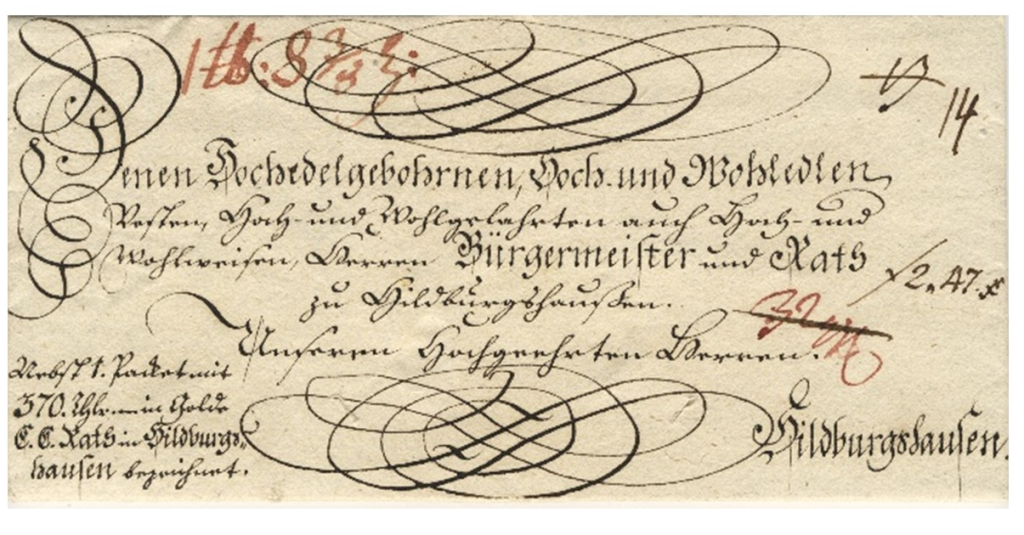 1 ℔. 8 7/8
14
Denen Hochedelgebohrnen, Hoch- und Wohledlen
Vesten, Hoch- und Wohlgelahrten auch Hoch- und
Wohlweisen, Herren Bürgermeister und Rath
f 2„ 47. x
zu Hildburgshaußen.
Unseren Hochgeehrten Herren.
Nebst 1. Packet mit
370. Thlr. in Golde
E. E. Rath in Hildburgs-
hausen bezeichnet.
Hildburgshausen.